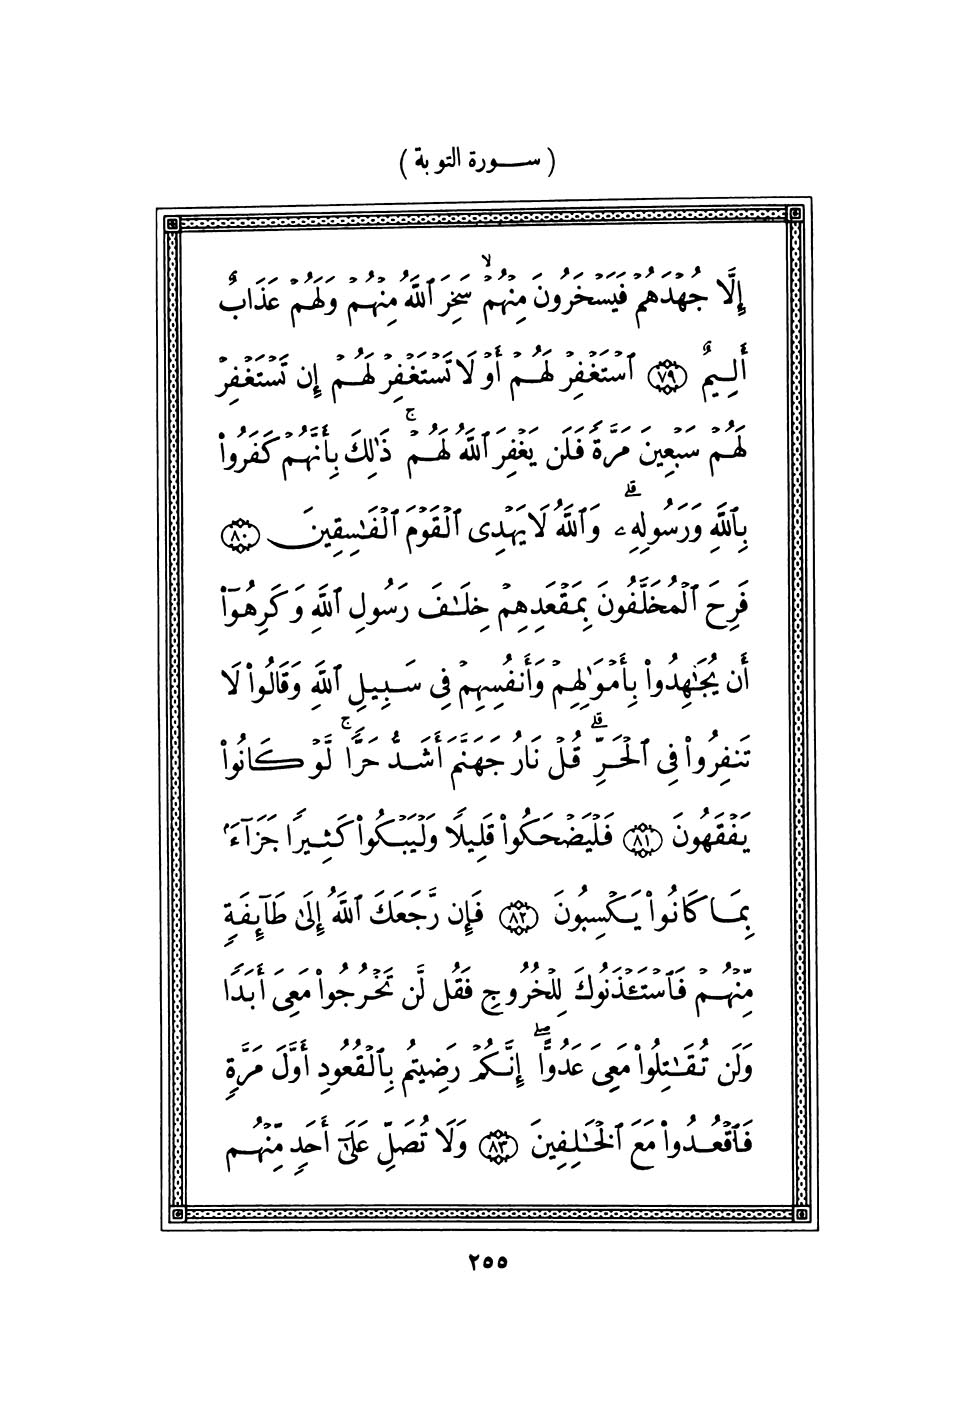 ( ســـورة التوبة )
إِلَّا جُهْدَهُمْ فَيَسْخَرُونَ مِنْهُمْ ۙ سَخِرَ ٱللَّهُ مِنْهُمْ وَلَهُمْ عَذَابٌ
أَلِيمٌ ﴿٧٩﴾ ٱسْتَغْفِرْ لَهُمْ أَوْ لَا تَسْتَغْفِرْ لَهُمْ إِن تَسْتَغْفِرْ
لَهُمْ سَبْعِينَ مَرَّةً فَلَن يَغْفِرَ ٱللَّهُ لَهُمْ ۚ ذَٰلِكَ بِأَنَّهُمْ كَفَرُوا۟
بِٱللَّهِ وَرَسُولِهِۦ ۗ وَٱللَّهُ لَا يَهْدِى ٱلْقَوْمَ ٱلْفَـٰسِقِينَ ﴿٨٠﴾
فَرِحَ ٱلْمُخَلَّفُونَ بِمَقْعَدِهِمْ خِلَـٰفَ رَسُولِ ٱللَّهِ وَكَرِهُوٓا۟
أَن يُجَـٰهِدُوا۟ بِأَمْوَٰلِهِمْ وَأَنفُسِهِمْ فِى سَبِيلِ ٱللَّهِ وَقَالُوا۟ لَا
تَنفِرُوا۟ فِى ٱلْحَرِّ ۗ قُلْ نَارُ جَهَنَّمَ أَشَدُّ حَرًّا ۚ لَّوْ كَانُوا۟
يَفْقَهُونَ ﴿٨١﴾ فَلْيَضْحَكُوا۟ قَلِيلًا وَلْيَبْكُوا۟ كَثِيرًا جَزَآءًۢ
بِمَا كَانُوا۟ يَكْسِبُونَ ﴿٨٢﴾ فَإِن رَّجَعَكَ ٱللَّهُ إِلَىٰ طَآئِفَةٍ
مِّنْهُمْ فَٱسْتَـْٔذَنُوكَ لِلْخُرُوجِ فَقُل لَّن تَخْرُجُوا۟ مَعِىَ أَبَدًا
وَلَن تُقَـٰتِلُوا۟ مَعِىَ عَدُوًّا ۖ إِنَّكُمْ رَضِيتُم بِٱلْقُعُودِ أَوَّلَ مَرَّةٍ
فَٱقْعُدُوا۟ مَعَ ٱلْخَـٰلِفِينَ ﴿٨٣﴾ وَلَا تُصَلِّ عَلَىٰٓ أَحَدٍ مِّنْهُم
٢٥٥